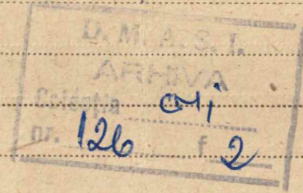 D. M. A. S. I.
ARHIVA
Colecția CMi
nr. 126 f 2